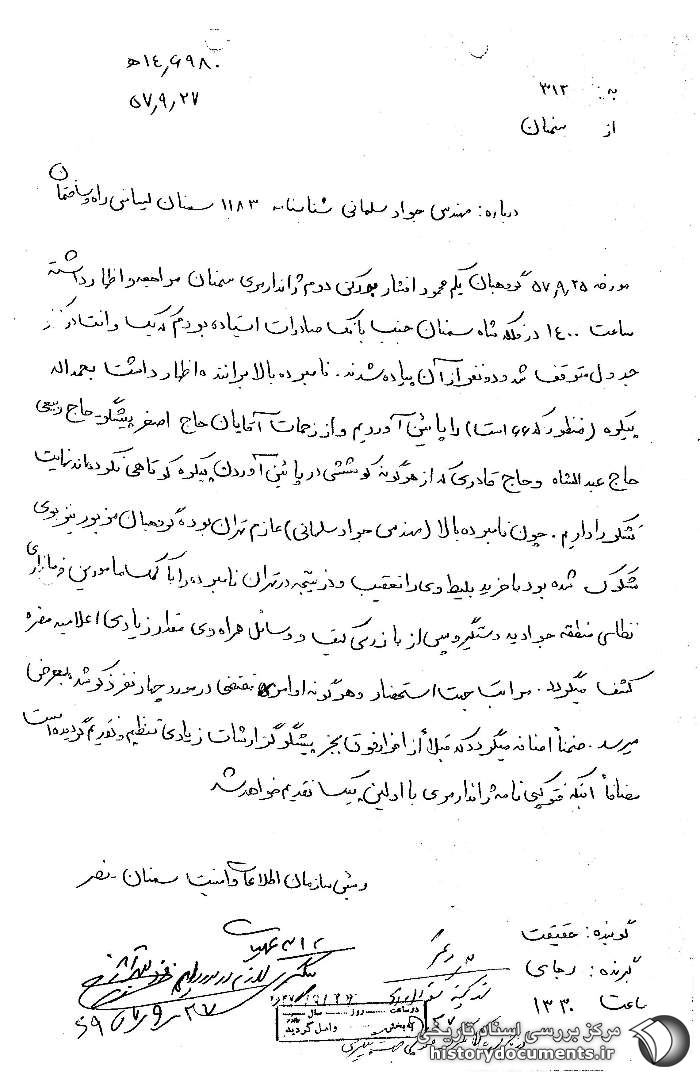 ۱۴٫۶۹۸۰ ﻫ
۵۷٫۹٫۲۷
به: ۳۱۲
از سمنان
درباره: مهندس جواد سلمانی شناسنامه ۱۱۸۳ سمنان لیسانس راه و ساختمان
مورخه ۵۷٫۹٫۲۵ گروهبان یکم محمود افشار دوم ژاندارمری سمنان مراجعه و اظهار داشته
ساعت ۱۴۰۰ در فلکه شاه سمنان جنب بانک صادرات ایستاده بودم که یک وانت در کنار
جدول متوقف شد و دو نفر از آن پیاده شدند. نامبرده بالا براننده اظهار داشت بحمداله
پیکره (منظور که ۶۶ است) را پائین آوردیم و از زحمات آقایان حاج اصغر پیشگو حاج ربیعی
حاج عبدالشاه و حاج قادری که از هرگونه کوششی در پائین آوردن پیکره کوتاهی نکرده‌اند نهایت
تشکر را داریم. چون نامبرده بالا (مهندس جواد سلمانی) عازم تهران بوده گروهبان مزبور بنزد وی
مشکوک شده بود با خرید بلیط وی را تعقیب و در نتیجه در تهران نامبرده را با کمک مامورین فرمانداری
نظامی منطقه جوادیه دستگیر و پس از بازرسی کیف و وسائل همراه وی مقدار زیادی اعلامیه مضره
کشف میگردد. مراتب جهت استحضار و هرگونه اوامر مقتضی در مورد چهار نفر ذکر شده بعرض
میرسد. ضمناً اضافه میگردد که قبلاً از افراد فوق بجز پیشگو گزارشات زیادی تنظیم و تقدیم گردیده است
مضافاً اینکه فتوکپی نامه ژاندارمری با اولین پیک تقدیم خواهد شد
رئیس سازمان اطلاعات و امنیت سمنان
گوینده: حقیقت
گیرنده: رجائی
ساعت ۱۳۳۰
۵۷٫۹٫۲۷
در ساعت روز سال
به بخش واصل گردید
مرکز بررسی اسناد تاریخی
historydocuments.ir